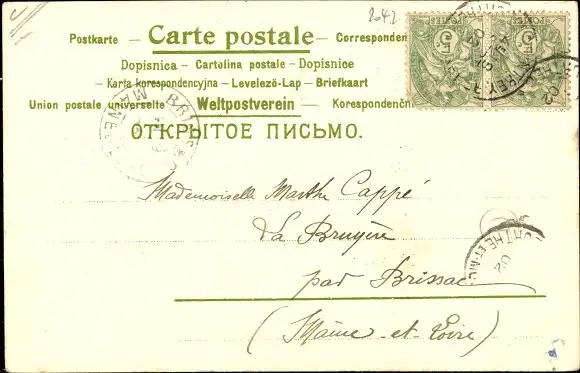 2642
Postkarte — Carte postale — Corresponden
Dopisnica — Cartolina postale — Dopisnice
Karta korespondencyjna — Levelező-Lap — Briefkaart
Union postale universelle Weltpostverein — Korespondenčn
ОТКРЫТОЕ ПИСЬМО.
Mademoiselle Marthe Cappé
La Bruyère
par Brissac
(Maine-et-Loire)
POSTES POSTES
5 5
BRIS
MEURTHE-ET-MO
02